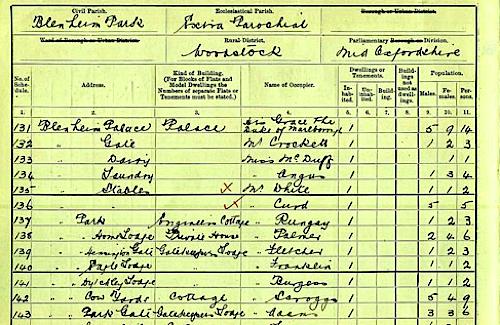 Civil Parish. Ecclesiastical Parish.
Blenheim Park Extra Parochial
Ward of Borough or Urban District. Borough or Urban District.
Rural District. Parliamentary Borough or Division.
Woodstock Mid Oxfordshire
No. of Schedule. Address. Kind of Building. (For Blocks of Flats and Model Dwellings the Numbers of separate Flats or Tenements must be stated.) Name of Occupier. Dwellings or Tenements. Inhabited. Uninhabited. Building. Buildings not used as dwellings. Population. Males. Females. Persons.
1. 2. 3. 4. 5. 6. 7. 8. 9. 10. 11.
131 Blenheim Palace Palace His Grace The Duke of Marlborough 1 5 9 14
132 " Gate Mr Crockett 1 1 2 3
133 " Dairy Miss McDuff 1 1 1
134 " Laundry " Angus 1 1 3 4
135 " Stables X Mr White 1 1 1 2
136 " 1 5 5
137 " Park Cottage " Rungay 1 1 2 3
138 " " Home Lodge Private House " Palmer 1 2 4 6
139 " " Hensington Gate Gatekeepers Lodge " Fletcher 1 1 2 3
140 " " Lodge " Franklin 1 1 1 2
141 " " Ditchley Lodge " Burgess 1 1 1 2
142 " " Cow Yards Cottage " Scroggs 1 5 4 9
143 " " Park Gate Gatekeepers Lodge " Adams 1 3 3 6